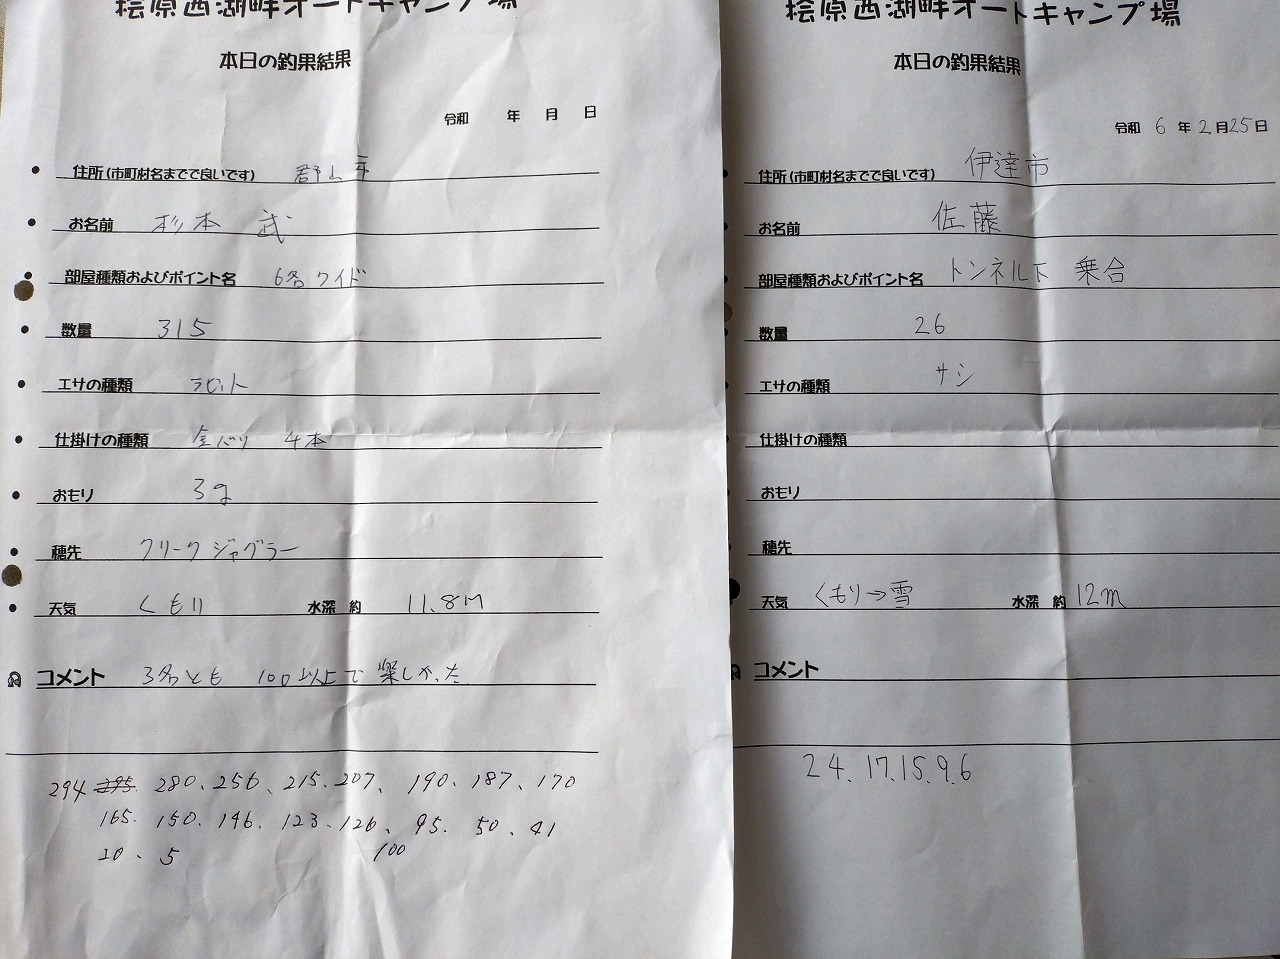 桧原西湖畔オートキャンプ場
本日の釣果結果
令和 年 月 日
住所(市町村名までで良いです) 郡山市
お名前 杉本 武
部屋種類およびポイント名 6名ワイド
数量 315
エサの種類 ラビット
仕掛けの種類 金バリ 4本
おもり 3g
穂先 クリークジャグラー
天気 くもり 水深 約 11.8m
コメント 3名とも 100以上で楽しかった
294 295. 280、256、215.207、190、187、170
165. 150. 146. 123、126、95. 50、41
20、5 100
桧原西湖畔オートキャンプ場
本日の釣果結果
令和 6 年 2月25日
住所(市町村名までで良いです) 伊達市
お名前 佐藤
部屋種類およびポイント名 トンネル下 乗合
数量 26
エサの種類 サシ
仕掛けの種類
おもり
穂先
天気 くもり→雪 水深 約 12m
コメント
24.17.15.9.6